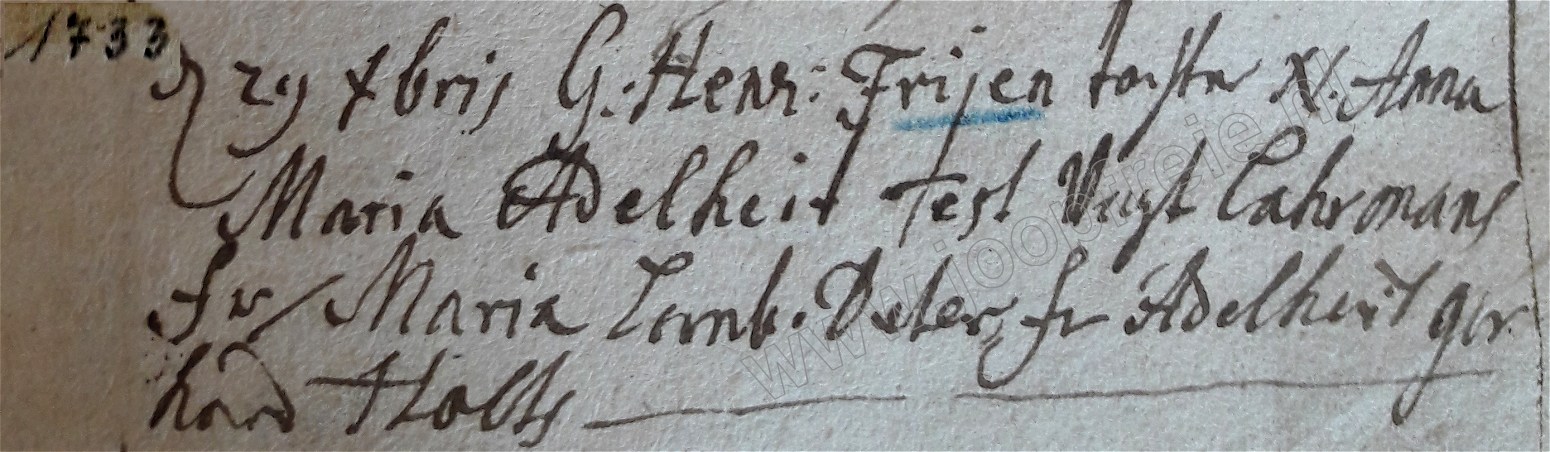 1733
29 xbris G: Henr: Frijen tochter N. Anna
Maria Adelheit Test Vagt Cahrmans
fr Maria Lamb. Deter fr Adelheit ger
hard Holts
www.joopfreie.nl